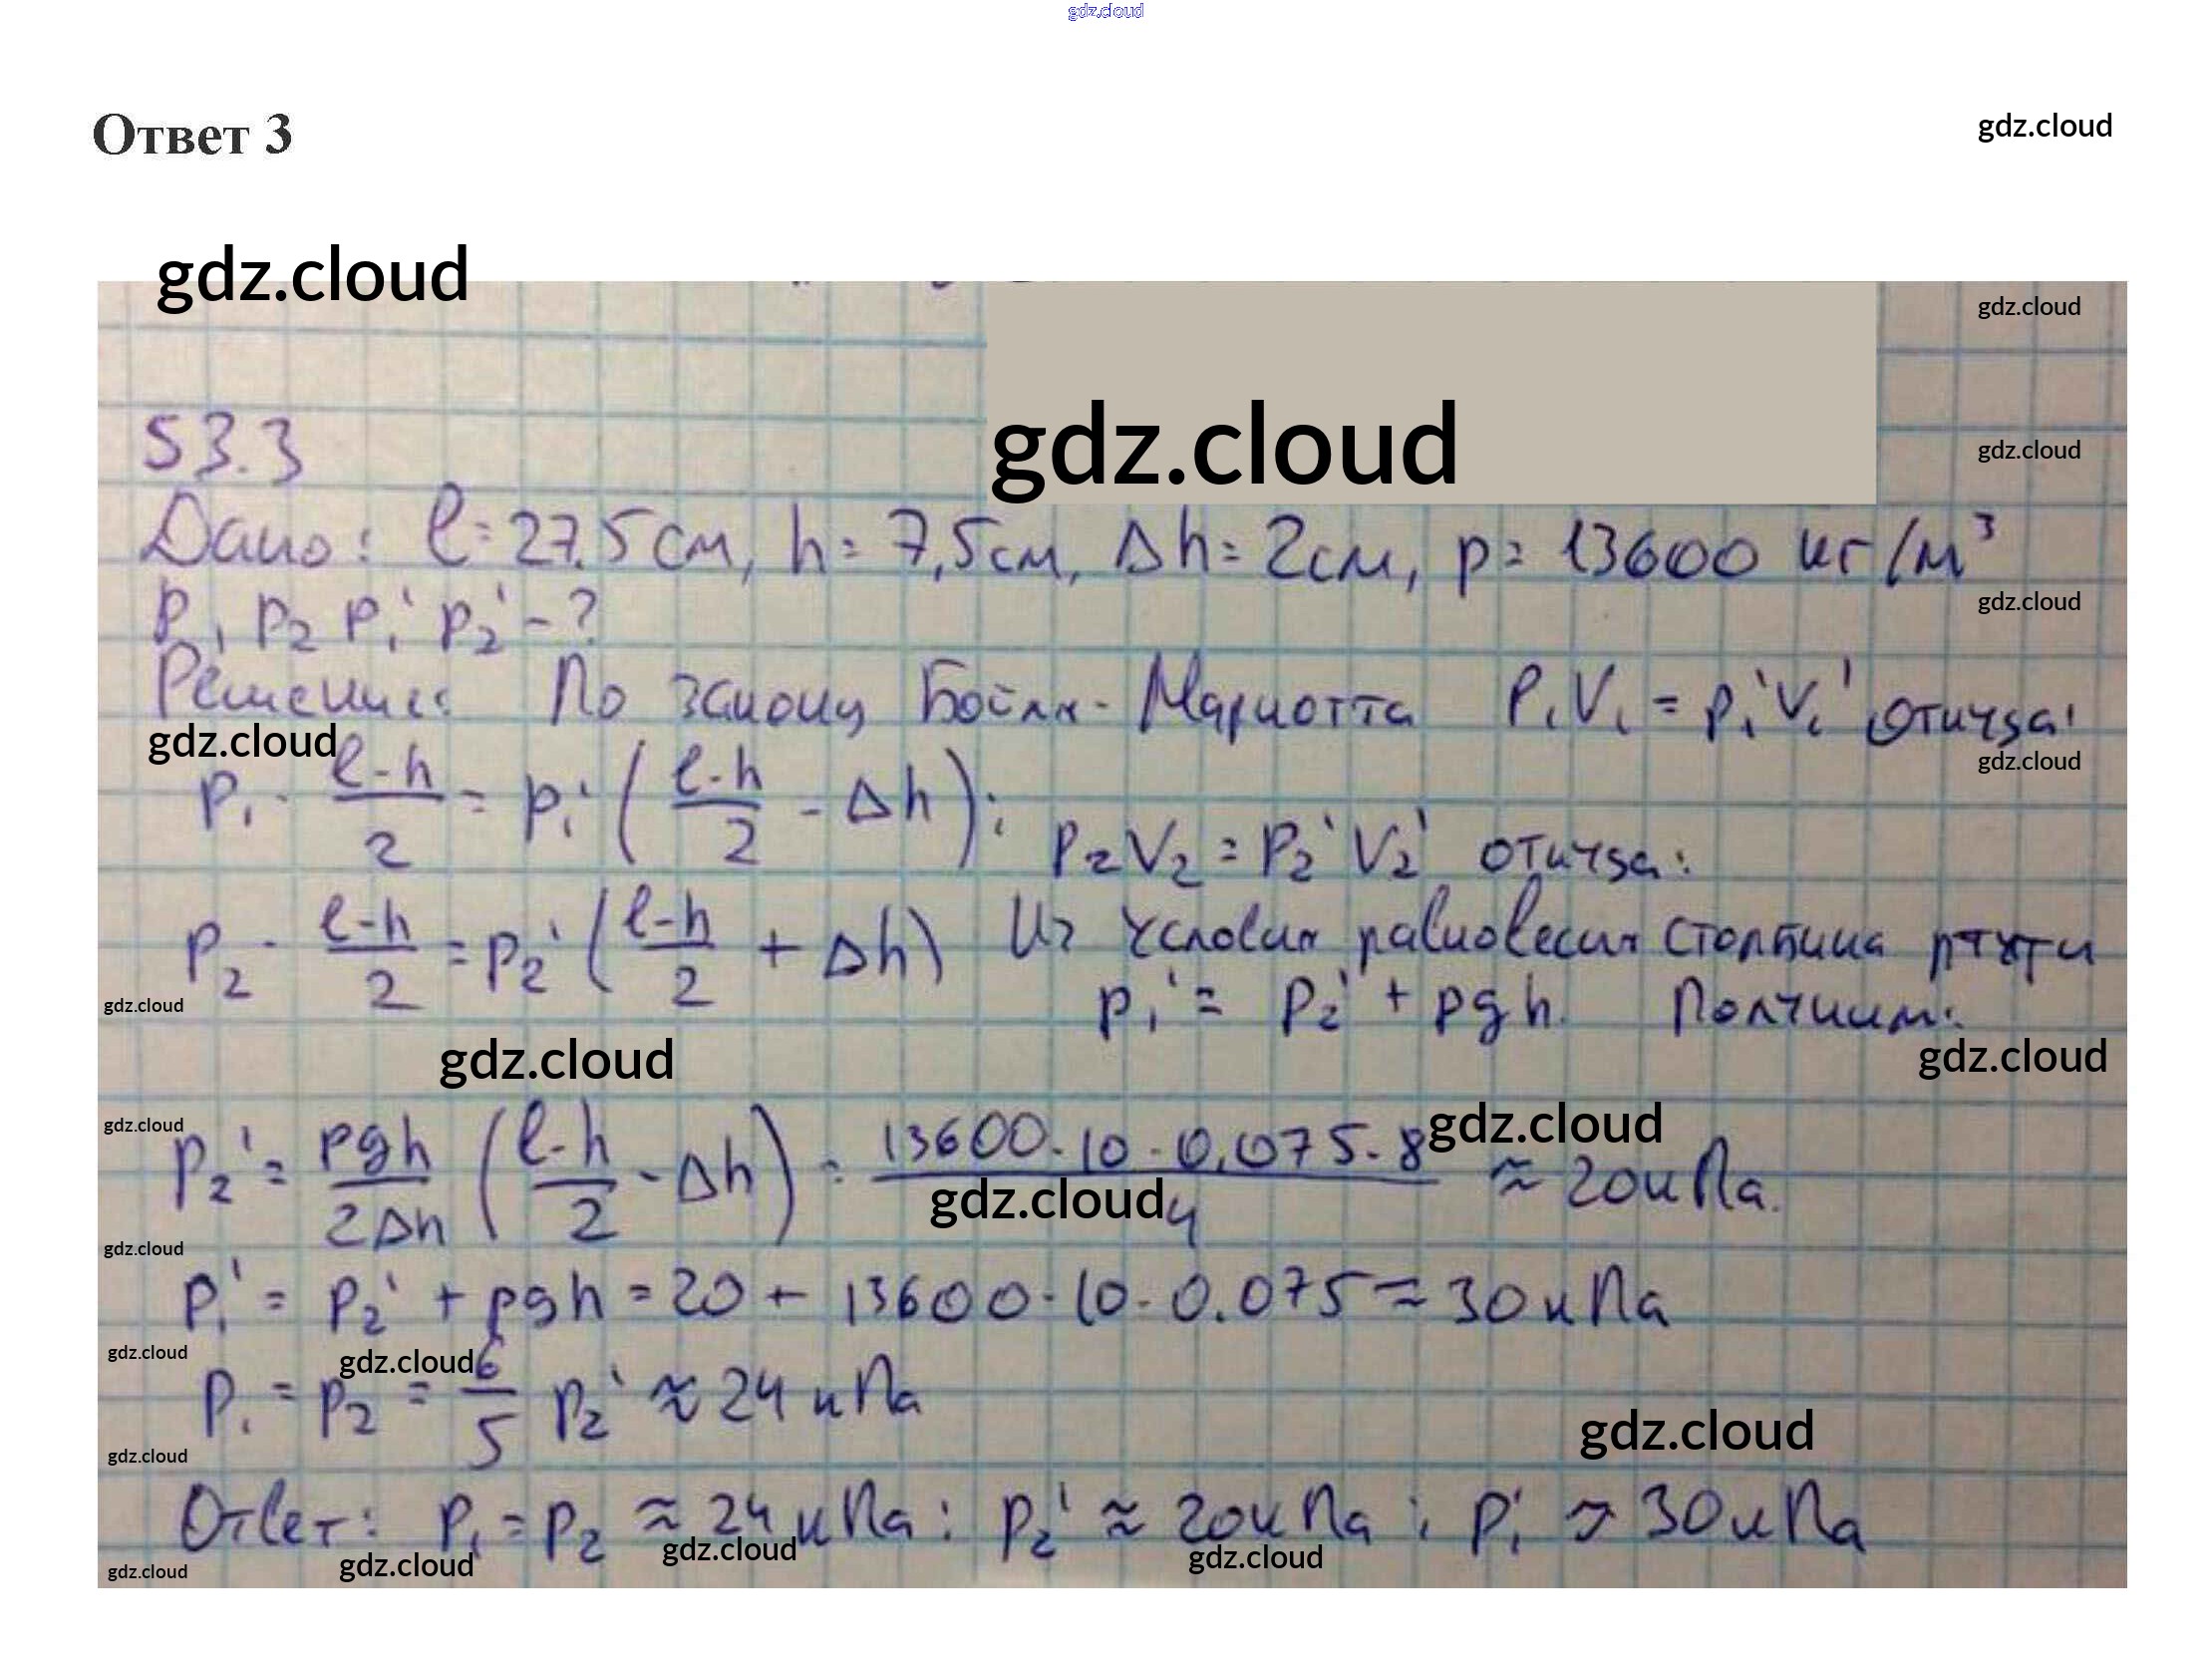 gdz.cloud
Ответ 3
gdz.cloud
gdz.cloud
gdz.cloud
53.3
gdz.cloud
gdz.cloud
Дано: l = 27.5 см, h = 7,5 см, Δh = 2 см, p = 13600 кг/м³
gdz.cloud
P₁ P₂ P₁' P₂' - ?
Решение: По закону Бойля-Мариотта P₁V₁ = P₁'V₁' откуда:
gdz.cloud
gdz.cloud
P₁ · (l-h)/2 = P₁' ((l-h)/2 - Δh); P₂V₂ = P₂'V₂' откуда:
P₂ · (l-h)/2 = P₂' ((l-h)/2 + Δh) Из условия равновесия столбика ртути
gdz.cloud
P₁' = P₂' + pgh. Получим:
gdz.cloud
gdz.cloud
gdz.cloud
gdz.cloud
P₂' = pgh/2Δh ((l-h)/2 - Δh) = 13600·10·0,075·8/4 ≈ 20 кПа.
gdz.cloud
gdz.cloud
P₁' = P₂' + pgh = 20 + 13600·10·0.075 ≈ 30 кПа
gdz.cloud
gdz.cloud
P₁ = P₂ = 6/5 P₂' ≈ 24 кПа
gdz.cloud
gdz.cloud
Ответ: P₁ = P₂ ≈ 24 кПа; P₂' ≈ 20 кПа; P₁' ≈ 30 кПа
gdz.cloud
gdz.cloud
gdz.cloud
gdz.cloud